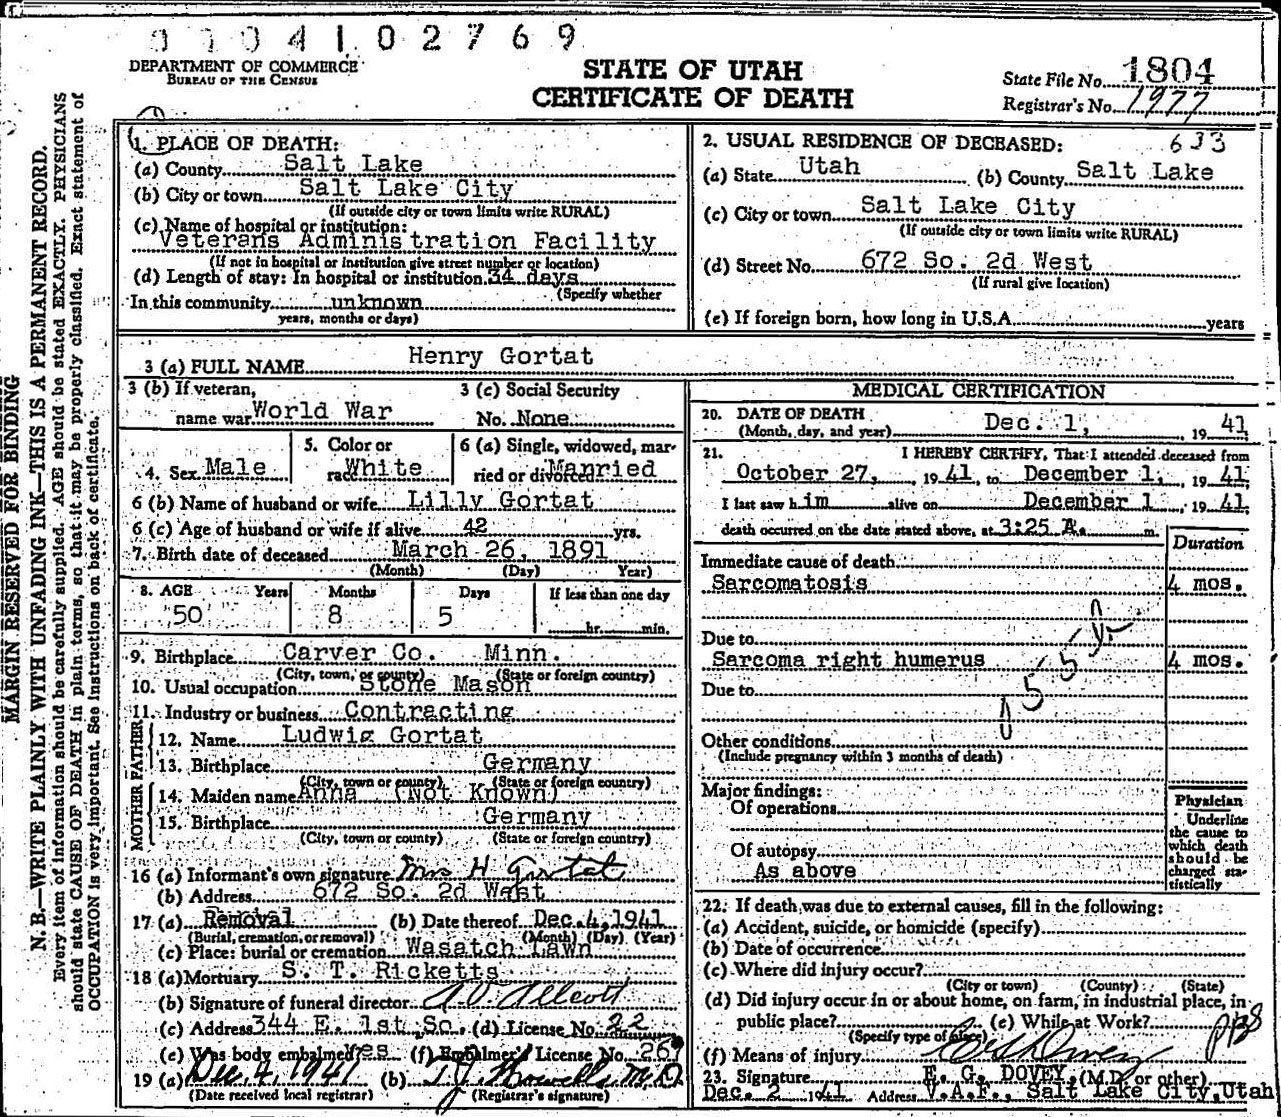 4 1 0 2 7 6 9
DEPARTMENT OF COMMERCE
BUREAU OF THE CENSUS
STATE OF UTAH
CERTIFICATE OF DEATH
State File No. 1804
Registrar's No. 1977
MARGIN RESERVED FOR BINDING
N. B.—WRITE PLAINLY WITH UNFADING INK—THIS IS A PERMANENT RECORD.
Every item of information should be carefully supplied. AGE should be stated EXACTLY. PHYSICIANS
should state CAUSE OF DEATH in plain terms, so that it may be properly classified. Exact statement of
OCCUPATION is very important. See instructions on back of certificate.
1. PLACE OF DEATH:
(a) County Salt Lake
(b) City or town Salt Lake City
(If outside city or town limits write RURAL)
(c) Name of hospital or institution:
Veterans Administration Facility
(If not in hospital or institution give street number or location)
(d) Length of stay: In hospital or institution 34 days
(Specify whether
In this community unknown
years, months or days)
2. USUAL RESIDENCE OF DECEASED: 633
(a) State Utah (b) County Salt Lake
(c) City or town Salt Lake City
(If outside city or town limits write RURAL)
(d) Street No. 672 So. 2d West
(If rural give location)
(e) If foreign born, how long in U.S.A. years
3 (a) FULL NAME Henry Gortat
3 (b) If veteran, 3 (c) Social Security
name war World War No. None
4. Sex Male 5. Color or race White 6 (a) Single, widowed, married or divorced Married
6 (b) Name of husband or wife Lilly Gortat
6 (c) Age of husband or wife if alive 42 yrs.
7. Birth date of deceased March 26, 1891
(Month) (Day) Year)
8. AGE Years Months Days If less than one day
50 8 5 hr. min.
9. Birthplace Carver Co. Minn.
(City, town, or county) (State or foreign country)
10. Usual occupation Stone Mason
11. Industry or business Contracting
FATHER
12. Name Ludwig Gortat
13. Birthplace Germany
(City, town or county) (State or foreign country)
MOTHER
14. Maiden name Anna (Not Known)
15. Birthplace Germany
(City, town or county) (State or foreign country)
16 (a) Informant's own signature Mrs H Gortat
(b) Address 672 So. 2d West
17 (a) Removal (b) Date thereof Dec. 4, 1941
(Burial, cremation, or removal) (Month) (Day) (Year)
(c) Place: burial or cremation Wasatch Lawn
18 (a) Mortuary S. T. Ricketts
(b) Signature of funeral director
(c) Address 344 E. 1st So. (d) License No. 22
(e) Was body embalmed? yes (f) Embalmer's License No. 26
19 (a) Dec. 4, 1941 (b) M.D.
(Date received local registrar) (Registrar's signature)
MEDICAL CERTIFICATION
20. DATE OF DEATH
(Month, day, and year) Dec. 1, 19 41
21. I HEREBY CERTIFY, That I attended deceased from
October 27, 19 41, to December 1, 19 41,
I last saw h im alive on December 1, 19 41,
death occurred on the date stated above, at 3:25 A. m.
Duration
Immediate cause of death
Sarcomatosis 4 mos.
Due to
Sarcoma right humerus 4 mos.
Due to
Other conditions
(Include pregnancy within 3 months of death)
Major findings:
Of operations
Of autopsy
As above
Physician
Underline
the cause to
which death
should be
charged sta-
tistically
22. If death was due to external causes, fill in the following:
(a) Accident, suicide, or homicide (specify)
(b) Date of occurrence
(c) Where did injury occur?
(City or town) (County) (State)
(d) Did injury occur in or about home, on farm, in industrial place, in
public place? (e) While at Work?
(Specify type of place)
(f) Means of injury
23. Signature E. G. DOVEY, (M.D. or other)
Dec. 2 1941 Address V.A.F., Salt Lake City, Utah